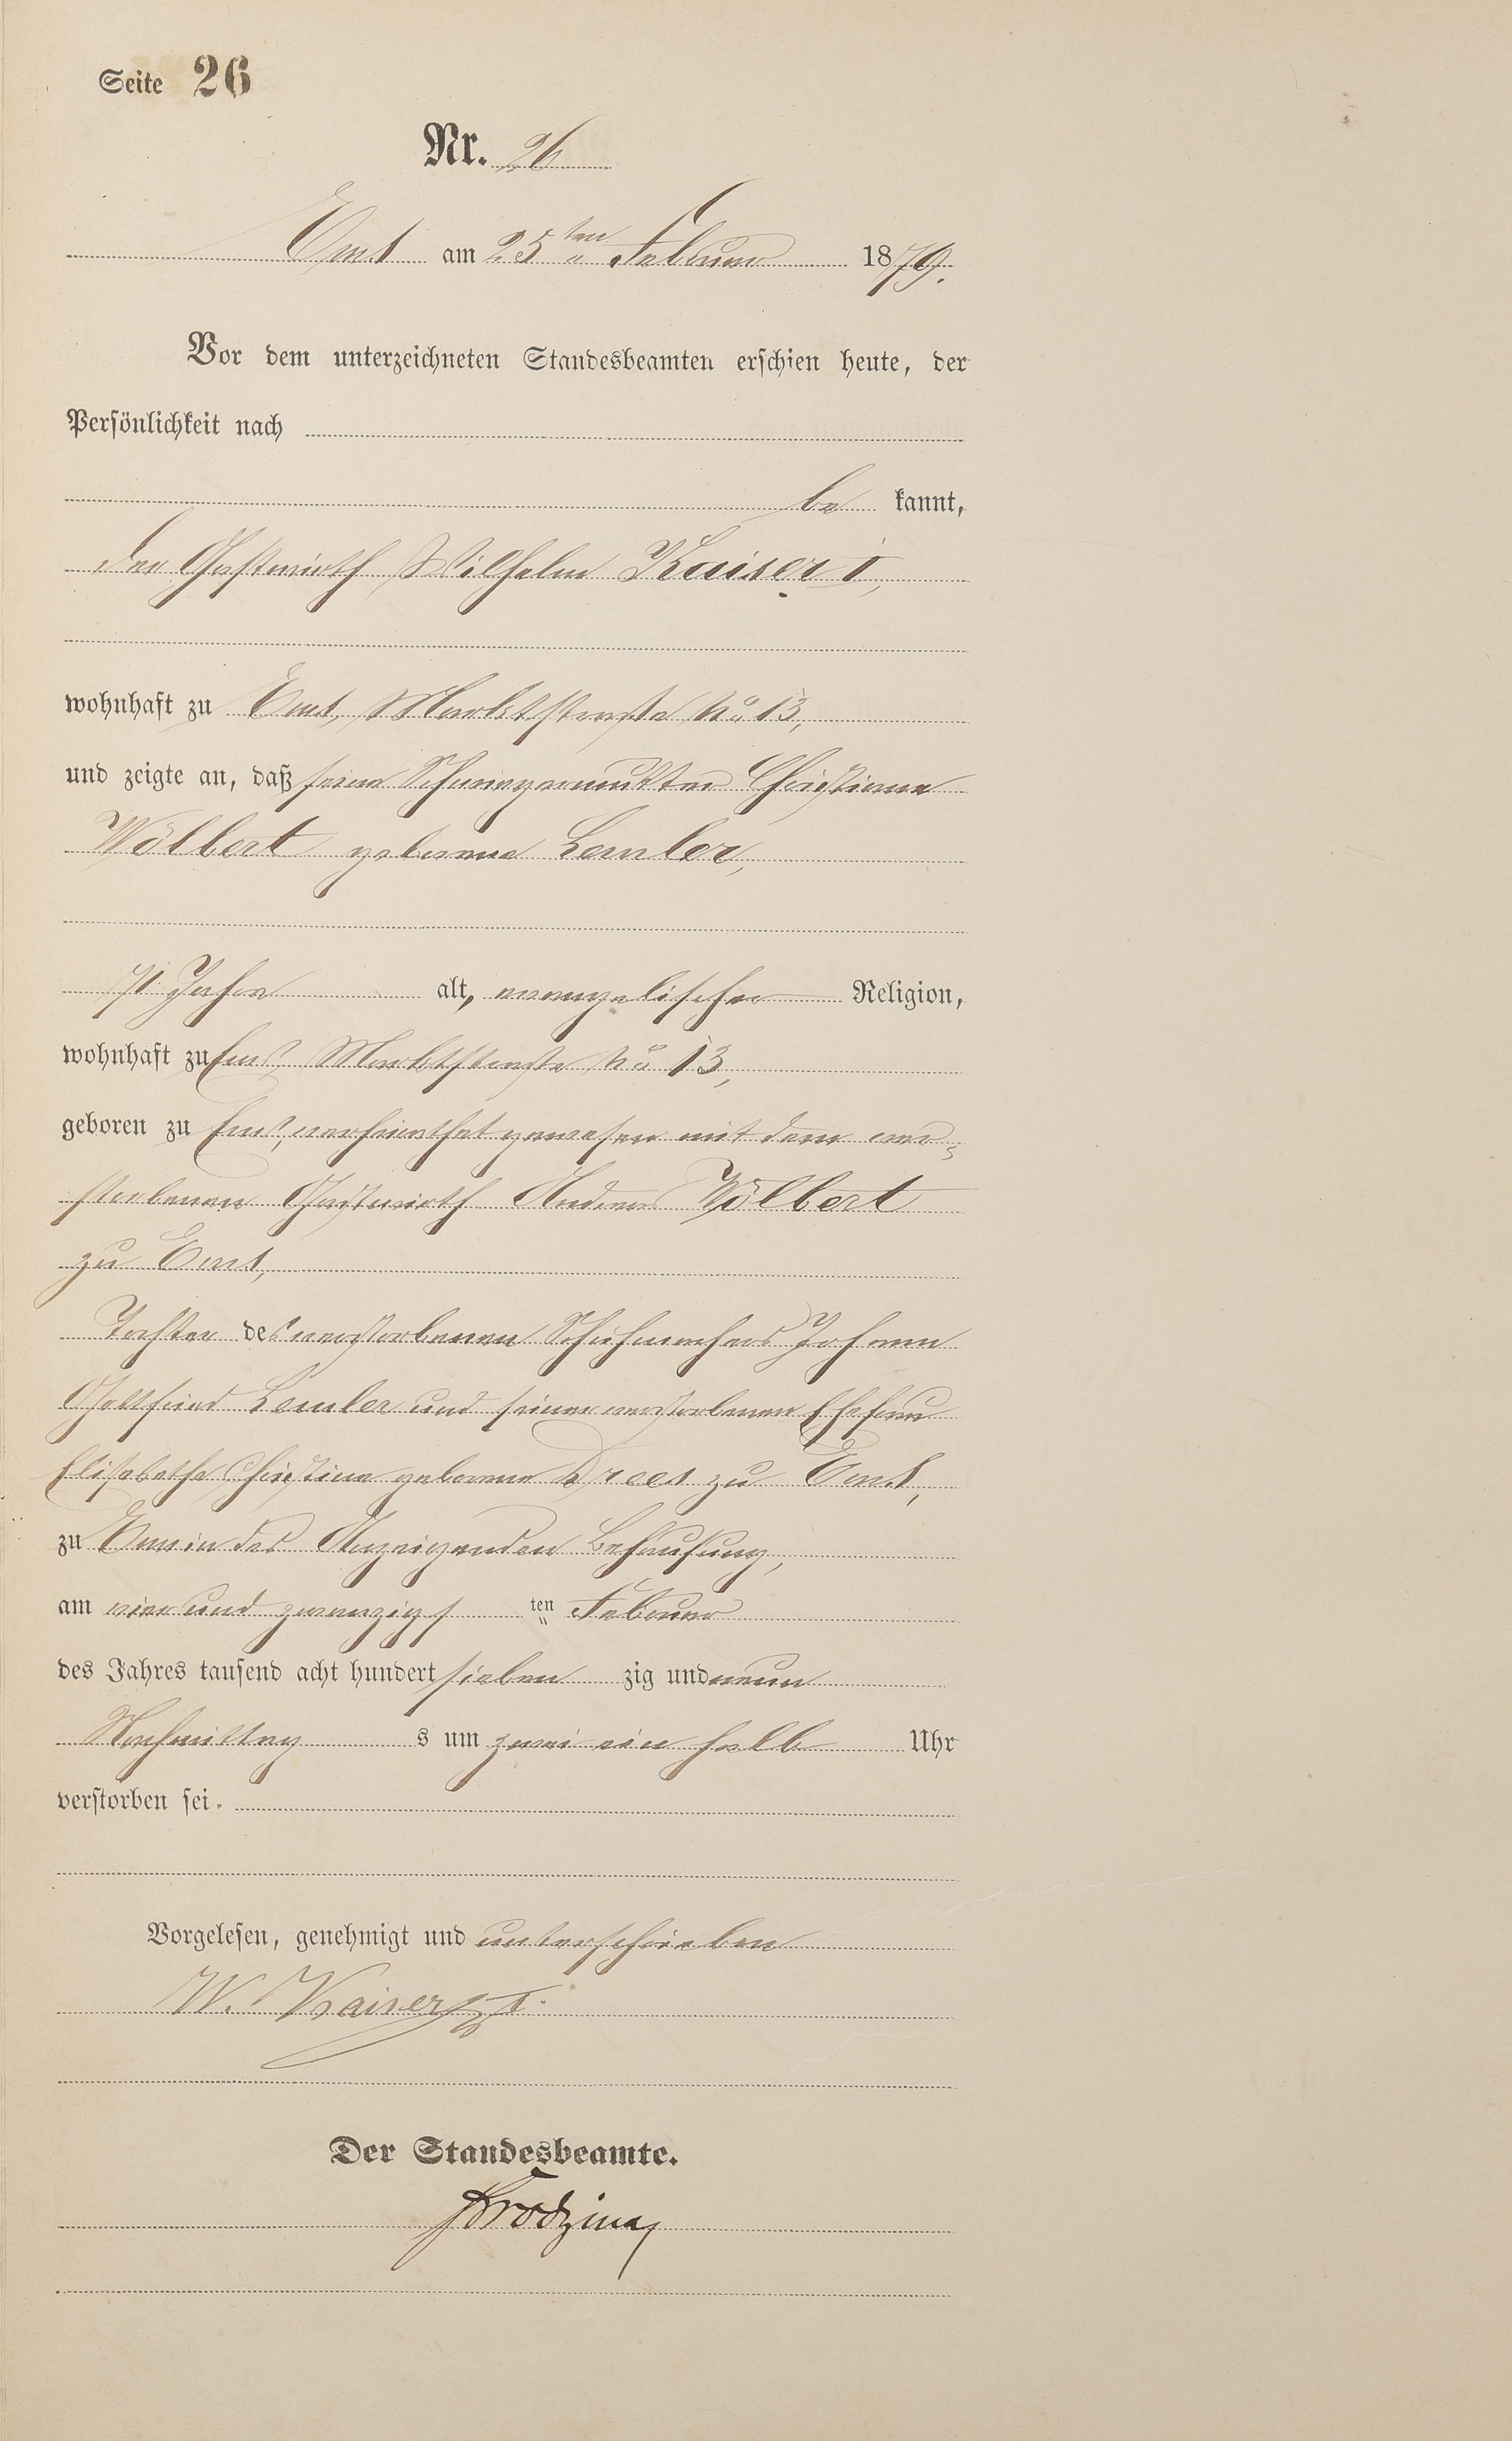 Seite 26
Nr. 26
Ems am 25ten Februar 1879.
Vor dem unterzeichneten Standesbeamten erschien heute, der
Persönlichkeit nach
be kannt,
der Gastwirth Wilhelm Kaiser I,
wohnhaft zu Ems, Marktstraße No 13,
und zeigte an, daß seine Schwiegermutter Christiane
Wölbert geborene Lemler,
71 Jahre alt, evangelischer Religion,
wohnhaft zu Ems, Marktstraße No 13,
geboren zu Ems, verheirathet gewesen mit dem ver-
storbenen Gastwirth Andreas Wölbert
zu Ems,
Tochter des verstorbenen Schuhmachers Johann
Gottfried Lemler und seiner verstorbenen Ehefrau
Elisabethe Christine geborene Drees zu Ems,
zu Ems in des Anzeigenden Behausung,
am vier und zwanzigs ten Februar
des Jahres tausend acht hundert sieben zig und neun
Nachmittag s um zwei ein halb Uhr
verstorben sei.
Vorgelesen, genehmigt und unterschrieben
W. Kaiser I.
Der Standesbeamte.